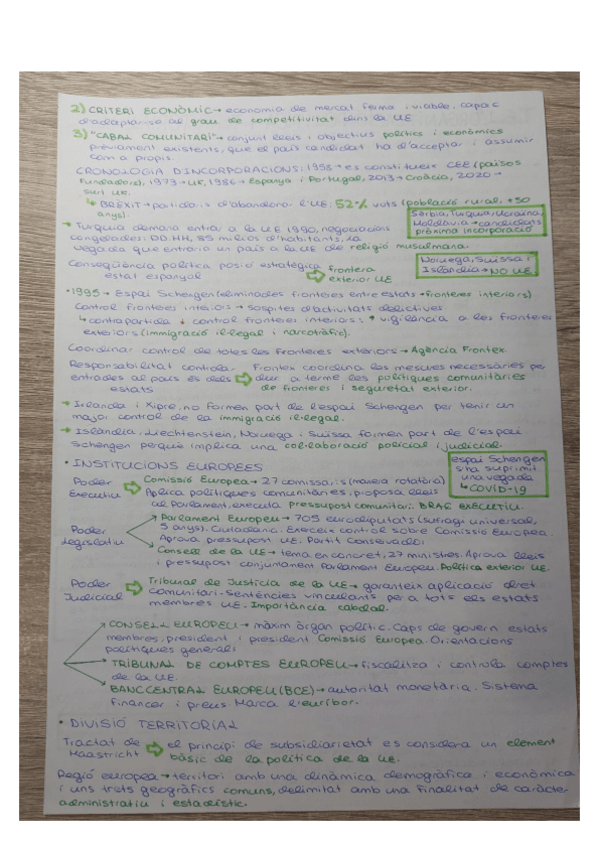 2) CRITERI ECONÒMIC→ economia de mercat ferma i viable, capaç
d'adaptar-se al grau de competitivitat dins la UE
3) "CABAL COMUNITARI"→ conjunt lleis i objectius polítics i econòmics
prèviament existents, que el país candidat ha d'acceptar i assumir
com a propis.
CRONOLOGIA D'INCORPORACIONS: 1958→ es constitueix CEE (països
fundadors), 1973→UK, 1986→ Espanya i Portugal, 2013→ Croàcia, 2020→
surt UK.
↳ BREXIT→ partidaris d'abandonar l'UE: 52% vots (població rural, +50
anys).
Sèrbia, Turquia, Ucraïna,
Moldàvia→candidats
pròxima incorporació
→ Turquia demana entrar a la UE 1990, negociacions
congelades: DD.HH, 85 milions d'habitants, 1a
vegada que entraria un país a la UE de religió musulmana.
Conseqüència política posició estratègica
estat espanyol
⇨ frontera
exterior UE
Noruega, Suïssa i
Islàndia→NO UE
• 1995→ Espai Schengen (eliminades fronteres entre estats→fronteres interiors)
Control fronteres interiors→ sospites d'activitats delictives
↳contrapartida ↓ control fronteres interiors: ↑ vigilància a les fronteres
exteriors (immigració il·legal i narcotràfic).
Coordinar control de totes les fronteres exteriors→ Agència Frontex.
Responsabilitat controlar
entrades al país és dels
estats
⇨ Frontex coordina les mesures necessàries per
dur a terme les polítiques comunitàries
de fronteres i seguretat exterior.
→ Irlanda i Xipre, no formen part de l'espai Schengen per tenir un
major control de la immigració il·legal.
→ Islàndia, Liechtenstein, Noruega i Suïssa formen part de l'espai
Schengen perquè implica una col·laboració policial i judicial.
espai Schengen
s'ha suprimit
una vegada
↳ COVID-19
• INSTITUCIONS EUROPEES
Poder
Executiu
⇨ Comissió Europea→ 27 comissaris (manera rotatòria)
Aplica polítiques comunitàries, proposa lleis
al Parlament, executa pressupost comunitari. BRAÇ EXECUTIU.
Poder
legislatiu
Parlament Europeu→ 705 eurodiputats (sufragi universal,
5 anys). Ciutadania. Exerceix control sobre Comissió Europea.
Aprova pressupost UE. Partit Conservador.
Consell de la UE→ tema en concret, 27 ministres. Aprova lleis
i pressupost conjuntament Parlament Europeu. Política exterior UE.
Poder
Judicial
⇨ Tribunal de Justícia de la UE→ garanteix aplicació dret
comunitari. Sentències vinculants per a tots els estats
membres UE. Importància cabdal.
CONSELL EUROPEU→ màxim òrgan polític. Caps de govern estats
membres, president i president Comissió Europea. Orientacions
polítiques generals
TRIBUNAL DE COMPTES EUROPEU→ fiscalitza i controla comptes
de la UE.
BANC CENTRAL EUROPEU (BCE)→ autoritat monetària. Sistema
financer i preus. Marca l'euríbor.
• DIVISIÓ TERRITORIAL
Tractat de
Maastricht
⇨ el principi de subsidiarietat es considera un element
bàsic de la política de la UE.
Regió europea→ territori amb una dinàmica demogràfica i econòmica
i uns trets geogràfics comuns, delimitat amb una finalitat de caràcter
administratiu i estadístic.